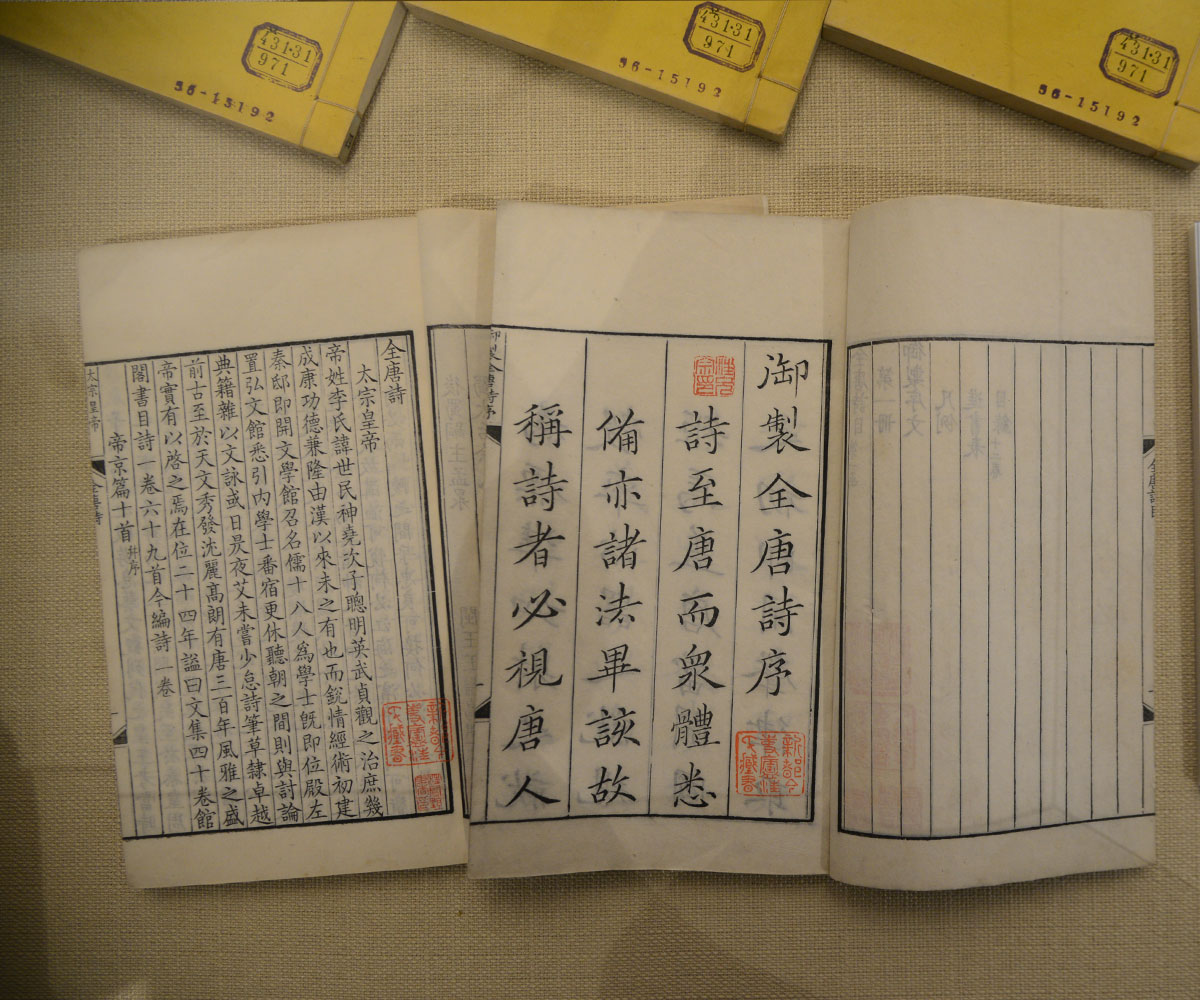 431·31
971
56-15192
431·31
971
56-15192
431·31
971
56-15192
御製序文
第一冊
凡例
御製全唐詩序
詩至唐而衆體悉
備亦諸法畢該故
稱詩者必視唐人
御製全唐詩序
全唐詩
太宗皇帝
帝姓李氏諱世民神堯次子聰明英武貞觀之治庶幾
成康功德兼隆由漢以來未之有也而銳情經術初建
秦邸即開文學館召名儒十八人為學士既即位殿左
置弘文館悉引內學士番宿更休聽朝之間則與討論
典籍雜以文詠或日昃夜艾未嘗少怠詩筆草隸卓越
前古至於天文秀發沈麗高朗有唐三百年風雅之盛
帝實有以啓之焉在位二十四年謚曰文集四十卷館
閣書目詩一卷六十九首今編詩一卷
帝京篇十首 并序
太宗皇帝
全唐詩